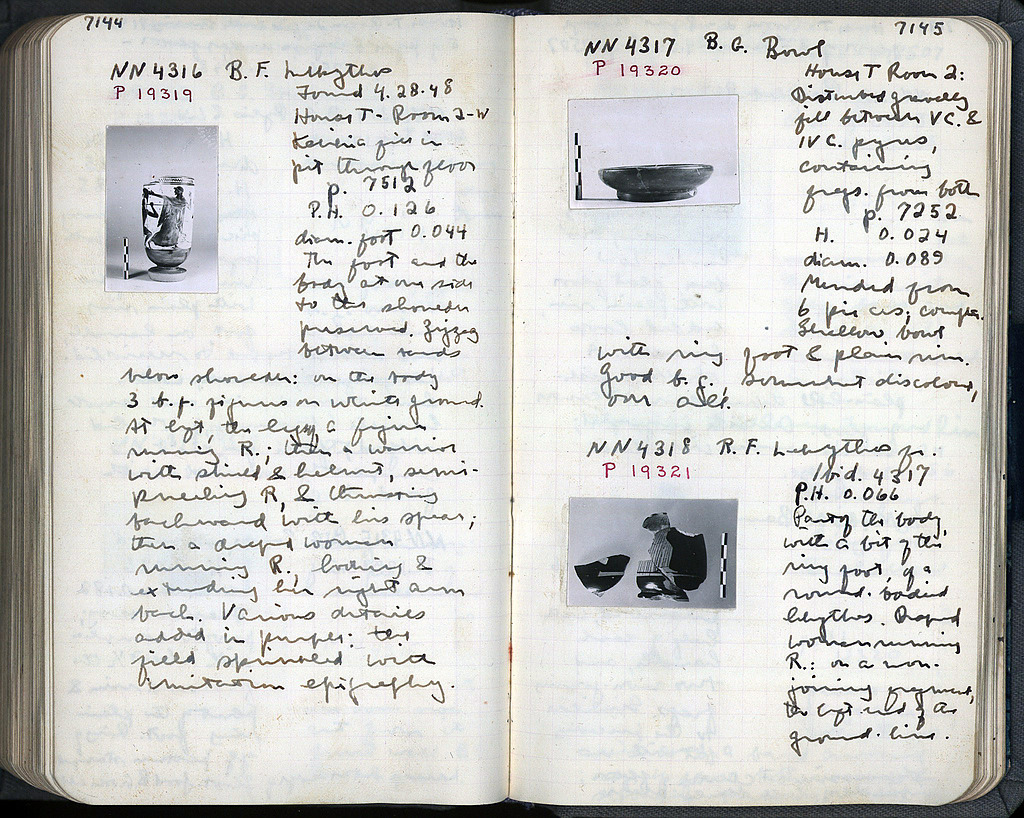 7144
NN 4316 B. F. Lekythos
P 19319
Found 4.28.48
House T - Room 2-W
fill in
pit through floor
p. 7512
P.H. 0.126
diam. foot 0.044
The foot and the
body at one side
to the shoulder
preserved. Zigzag
between bands
below shoulder: on the body
3 b.f. figures on white ground.
At left, the legs of a figure
running R.; then a warrior
with shield & helmet, semi-
kneeling R, & thrusting
backward with his spear;
then a draped woman
running R., looking &
extending her right arm
back. Various details
added in purple: the
field sprinkled with
imitation epigraphy.
7145
NN 4317 B. G. Bowl
P 19320
House T Room 2:
Disturbed gravelly
fill between V C. &
IV C.
containing
frags. from both
p. 7252
H. 0.024
diam. 0.089
Mended from
6 pieces; complete.
Shallow bowl
with ring foot & plain rim.
Good b.g., somewhat discolored,
over all.
NN 4318 R. F. Lekythos fr.
P 19321
Ibid. 4317
P.H. 0.066
Part of the body,
with a bit of the
ring foot, of a
round-bodied
lekythos. Draped
woman running
R.: on a non-
joining fragment,
the left end of the
ground-line.